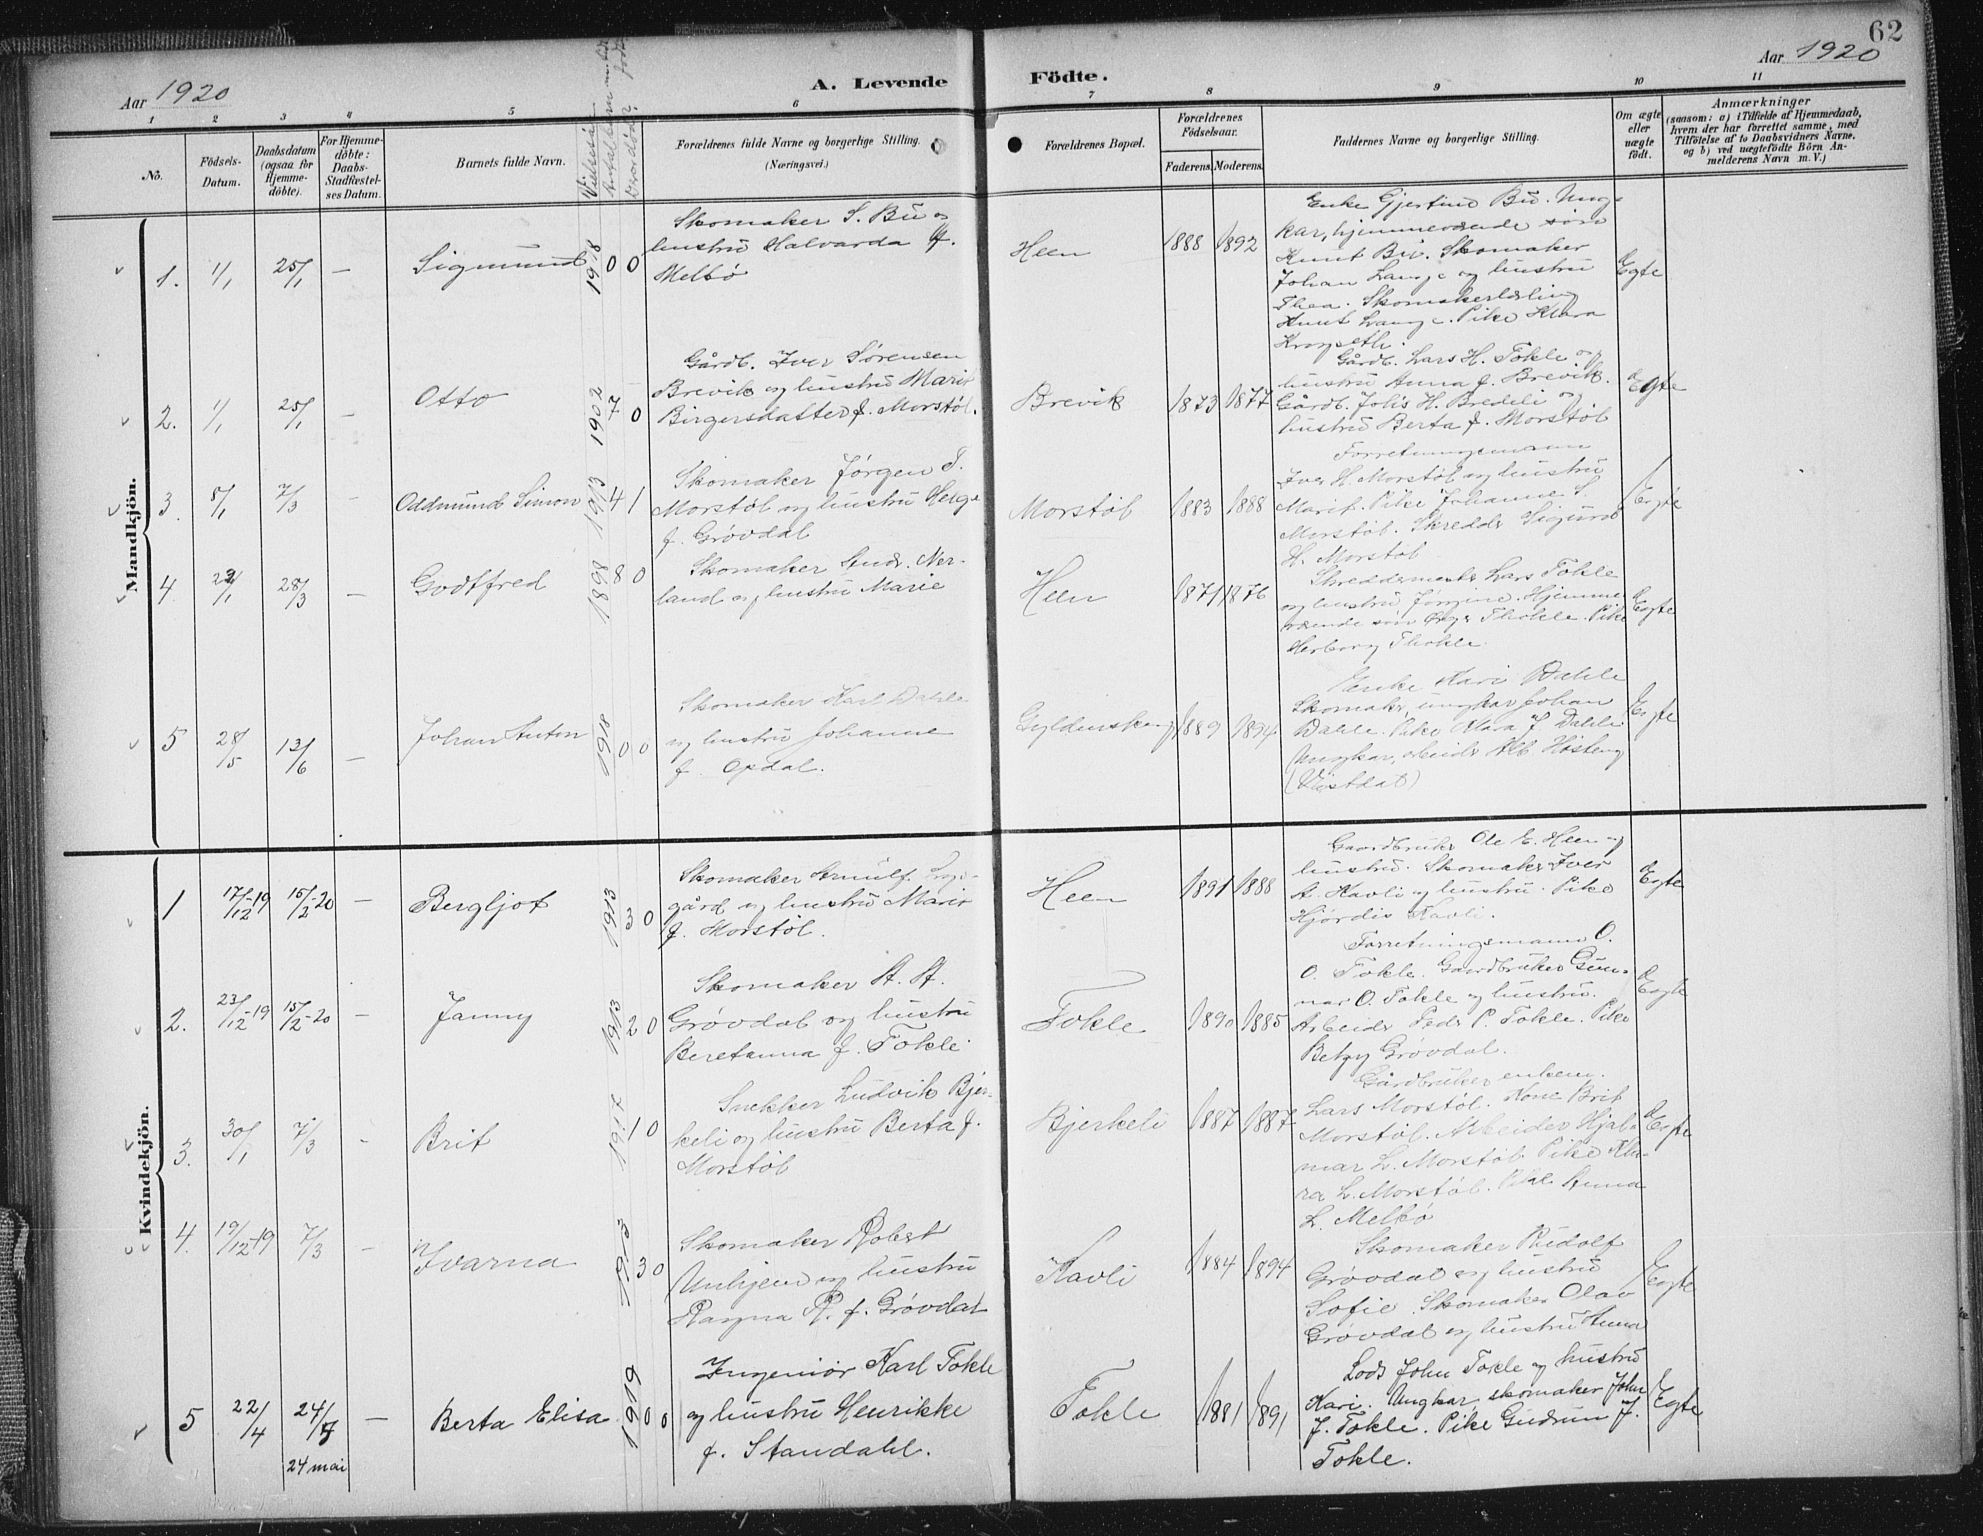 62
Aar 1920
A. Levende
Födte.
Aar 1920
1 2 3 4 5 6 7 8 9 10 11
No.
Födsels-
Datum.
Daabsdatum
(ogsaa for
Hjemme-
döbte).
For Hjemme-
döbte:
Daabs-
Stadfæstel-
ses Datum.
Barnets fulde Navn.
Vielsesår
Forældrenes fulde Navne og borgerlige Stilling.
(Næringsvei.)
Forældrenes Bopæl.
Forældrenes
Födselsaar.
Faderens. Moderens.
Faddernes Navne og borgerlige Stilling.
Om ægte
eller
uægte
födt.
Anmærkninger
(saasom: a) i Tilfælde af Hjemmedaab,
hvem der har forrettet samme, med
Tilföielse af to Daabsvidners Navne,
og b) ved uægtefödte Börn An-
melderens Navn m. V.)
Mandkjön.
1. 1/1 25/1 — Sigmund 1918 0 0
Skomaker S. Bü og
hustrü Halvarda f.
Melbö
Heen 1888 1892
Enke Gjertine Bü. Ung-
kar, hjemmeværende søn
Knut Bü. Skomaker
Johan Lange og hustrü
Thea. Skomakerlærling
Knut Lange. Pike Klara
Egte
2. 1/1 25/1 — Otto 1902 7 0
Gårdb. Iver Sørensen
Brevik og hustrü Marit
Birgersdatter f. Morstøl.
Brevik 1873 1877
Gårdb. Lars H. Tokle og
hustrü Anna f. Brevik.
Gårdb. Johs H. Bredeli og
hustrü Berta f. Morstöl
Egte
3. 8/1 7/3 — Oddmund Simon 1913 4 1
Skomaker Jørgen S.
Morstøl og hustrü Helga
f. Grøvdal
Morstøl 1883 1888
Forretningsmann
Iver H. Morstøl og hustrü
Marit. Pike Johanne S.
Morstøl. Skredder Sigurd
H. Morstøl
Egte
4. 28/3 — Godtfred 1898 8 0
Skomaker Andr. Ner-
land og hustrü Marie
Heen 1871 1876
Skreddermester Lars Tokle
og hustrü Jørgine. Hjemme-
værende søn Thokle. Pike
Herborg Thokle.
Egte
5 28/5 13/6 — Johan Anton 1918 0 0
Skomaker Karl Dahle
og hustrü Johanne
f. Opdal.
Gyldenskog 1889 1894
Enke Kari Dahle
Skomaker, ungkar Johan
Dahle. Pike Klara J. Dahle
Ungkar, arbeider Høsteng
Egte
Kvindekjön.
1 17/12-19 15/2-20 — Bergljot 1913 3 0
Skomaker Arnulf
gård og hustrü Marie
f. Morstøl.
Heen 1891 1888
Gaardbruker Ole E. Heen og
hustrü. Skomaker Iver
A. Kavli og hustrü. Pike
Hjørdis Kavli.
Egte
2. 23/12-19 15/2-20 — Janny 1913 2 0
Skomaker A. A.
Grøvdal og hustrü
Beretanna f. Tokle.
Tokle 1890 1885
Forretningsmann O.
O. Tokle. Gaardbruker Gün-
nar O. Tokle og hustrü.
Arbeider Peder P. Tokle. Pike
Betzy Grøvdal.
Egte
3. 30/1 7/3 — Brit 1917 1 0
Snekker Ludvik Bjer-
keli og hustrü Berta f.
Morstøl
Bjerkeli 1887 1887
Gårdbruker, enkem.
Lars Morstøl. Kone Brit
Morstøl. Arbeider Hjal-
mar L. Morstøl. Pike Kla-
ra L. Morstøl. Pike Anna
L. Melbø
Egte
4. 19/12-19 7/3 — Ivarna 1913 3 0
Skomaker Robert
Unhjem og hustrü
Ragna R. f. Grøvdal
Kavli 1884 1894
Skomaker Rudolf
Grøvdal og hustrü
Sofie. Skomaker Olav
Grøvdal og hustrü Anna
Egte
5 22/4 24/5 — Berta Elisa 1919 0 0
24 mai
Ingeniør Karl Tokle
og hustrü Henrikke
f. Standahl.
Tokle 1881 1891
Lods John Tokle og hustrü
Kari. Ungkar, skomaker John
J. Tokle. Pike Gudrun J.
Tokle.
Egte